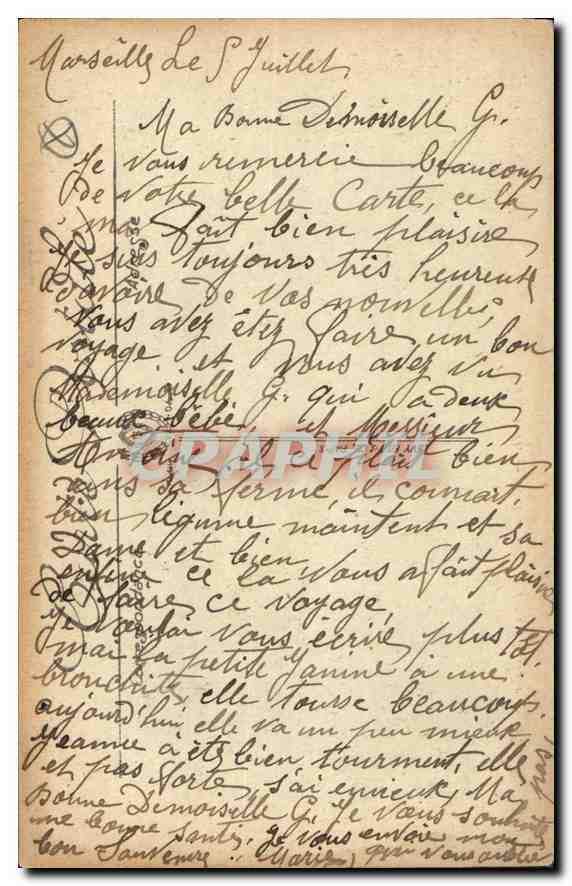 Marseille Le 5 Juillet
Ma Bonne Demoiselle G.
Je vous remercie beaucoup
de votre belle Carte, ce la
ma fait bien plaisire
Je suis toujours très heureuse
d'avoire de vos nouvelles,
Vous avez étez faire un bon
voyage et vous avez vu
Mademoiselle G. qui a deux
beaux bébé, et Messieur
Antoine, il ce plait bien
dans sa ferme, il connart.
bien ligume maintent et sa
Dame et bien,
enfin ce la vous a fait plaisire
de faire ce voyage,
Je voulai vous écrire plus tôt,
mai la petite Janine a une
bronchite, elle tousse beaucoup.
aujourd'hui elle va un peu mieux
Jeanne à été bien tourment, elle
et pas forte, s'ai ennieux, Ma
Bonne Demoiselle G. Je vous souhaite
une bonne santé. Je vous envoie mon
bon Souvenire. Marie, qui vous oublie
pas,
Adresse
Correspondance
CPAPHIL